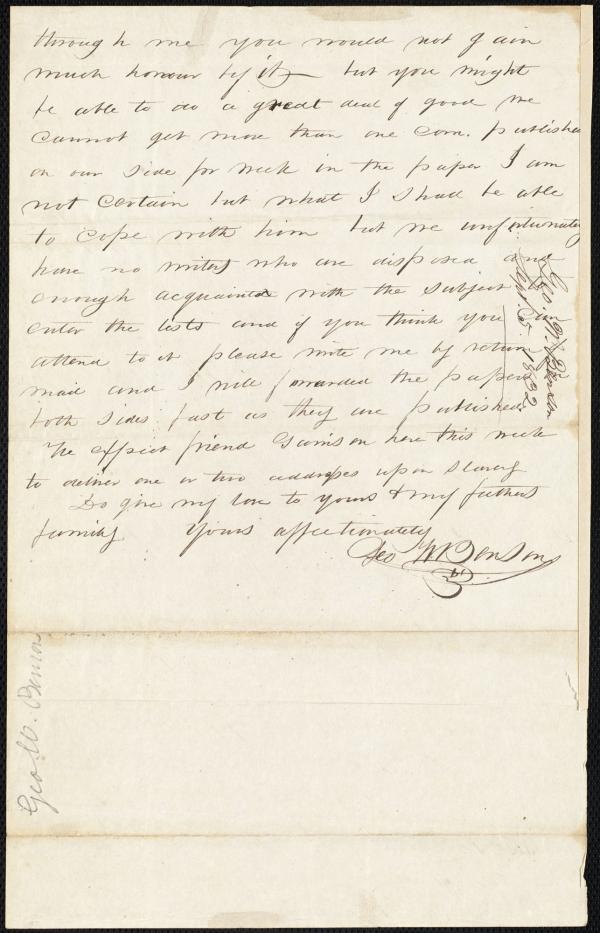 through me you would not gain
much honour by it but you might
be able to do a great deal of good we
cannot get more than one com. published
on our side per week in the paper I am
not certain but what I shall be able
to cope with him but we unfortunately
have no writers who are disposed and
enough acquainted with the subject to
enter the lists and if you think you
attend to it please write me by return
mail and I will forwarded the papers on
both sides fast as they are published.
We expect friend Garrison here this week
to deliver one or two addresses upon slavery
Do give my love to yours & my fathers
family Yours affectionately
Geo W Benson
Geo. W. Benson
Sept. 5. 1832
Geo W. Benson